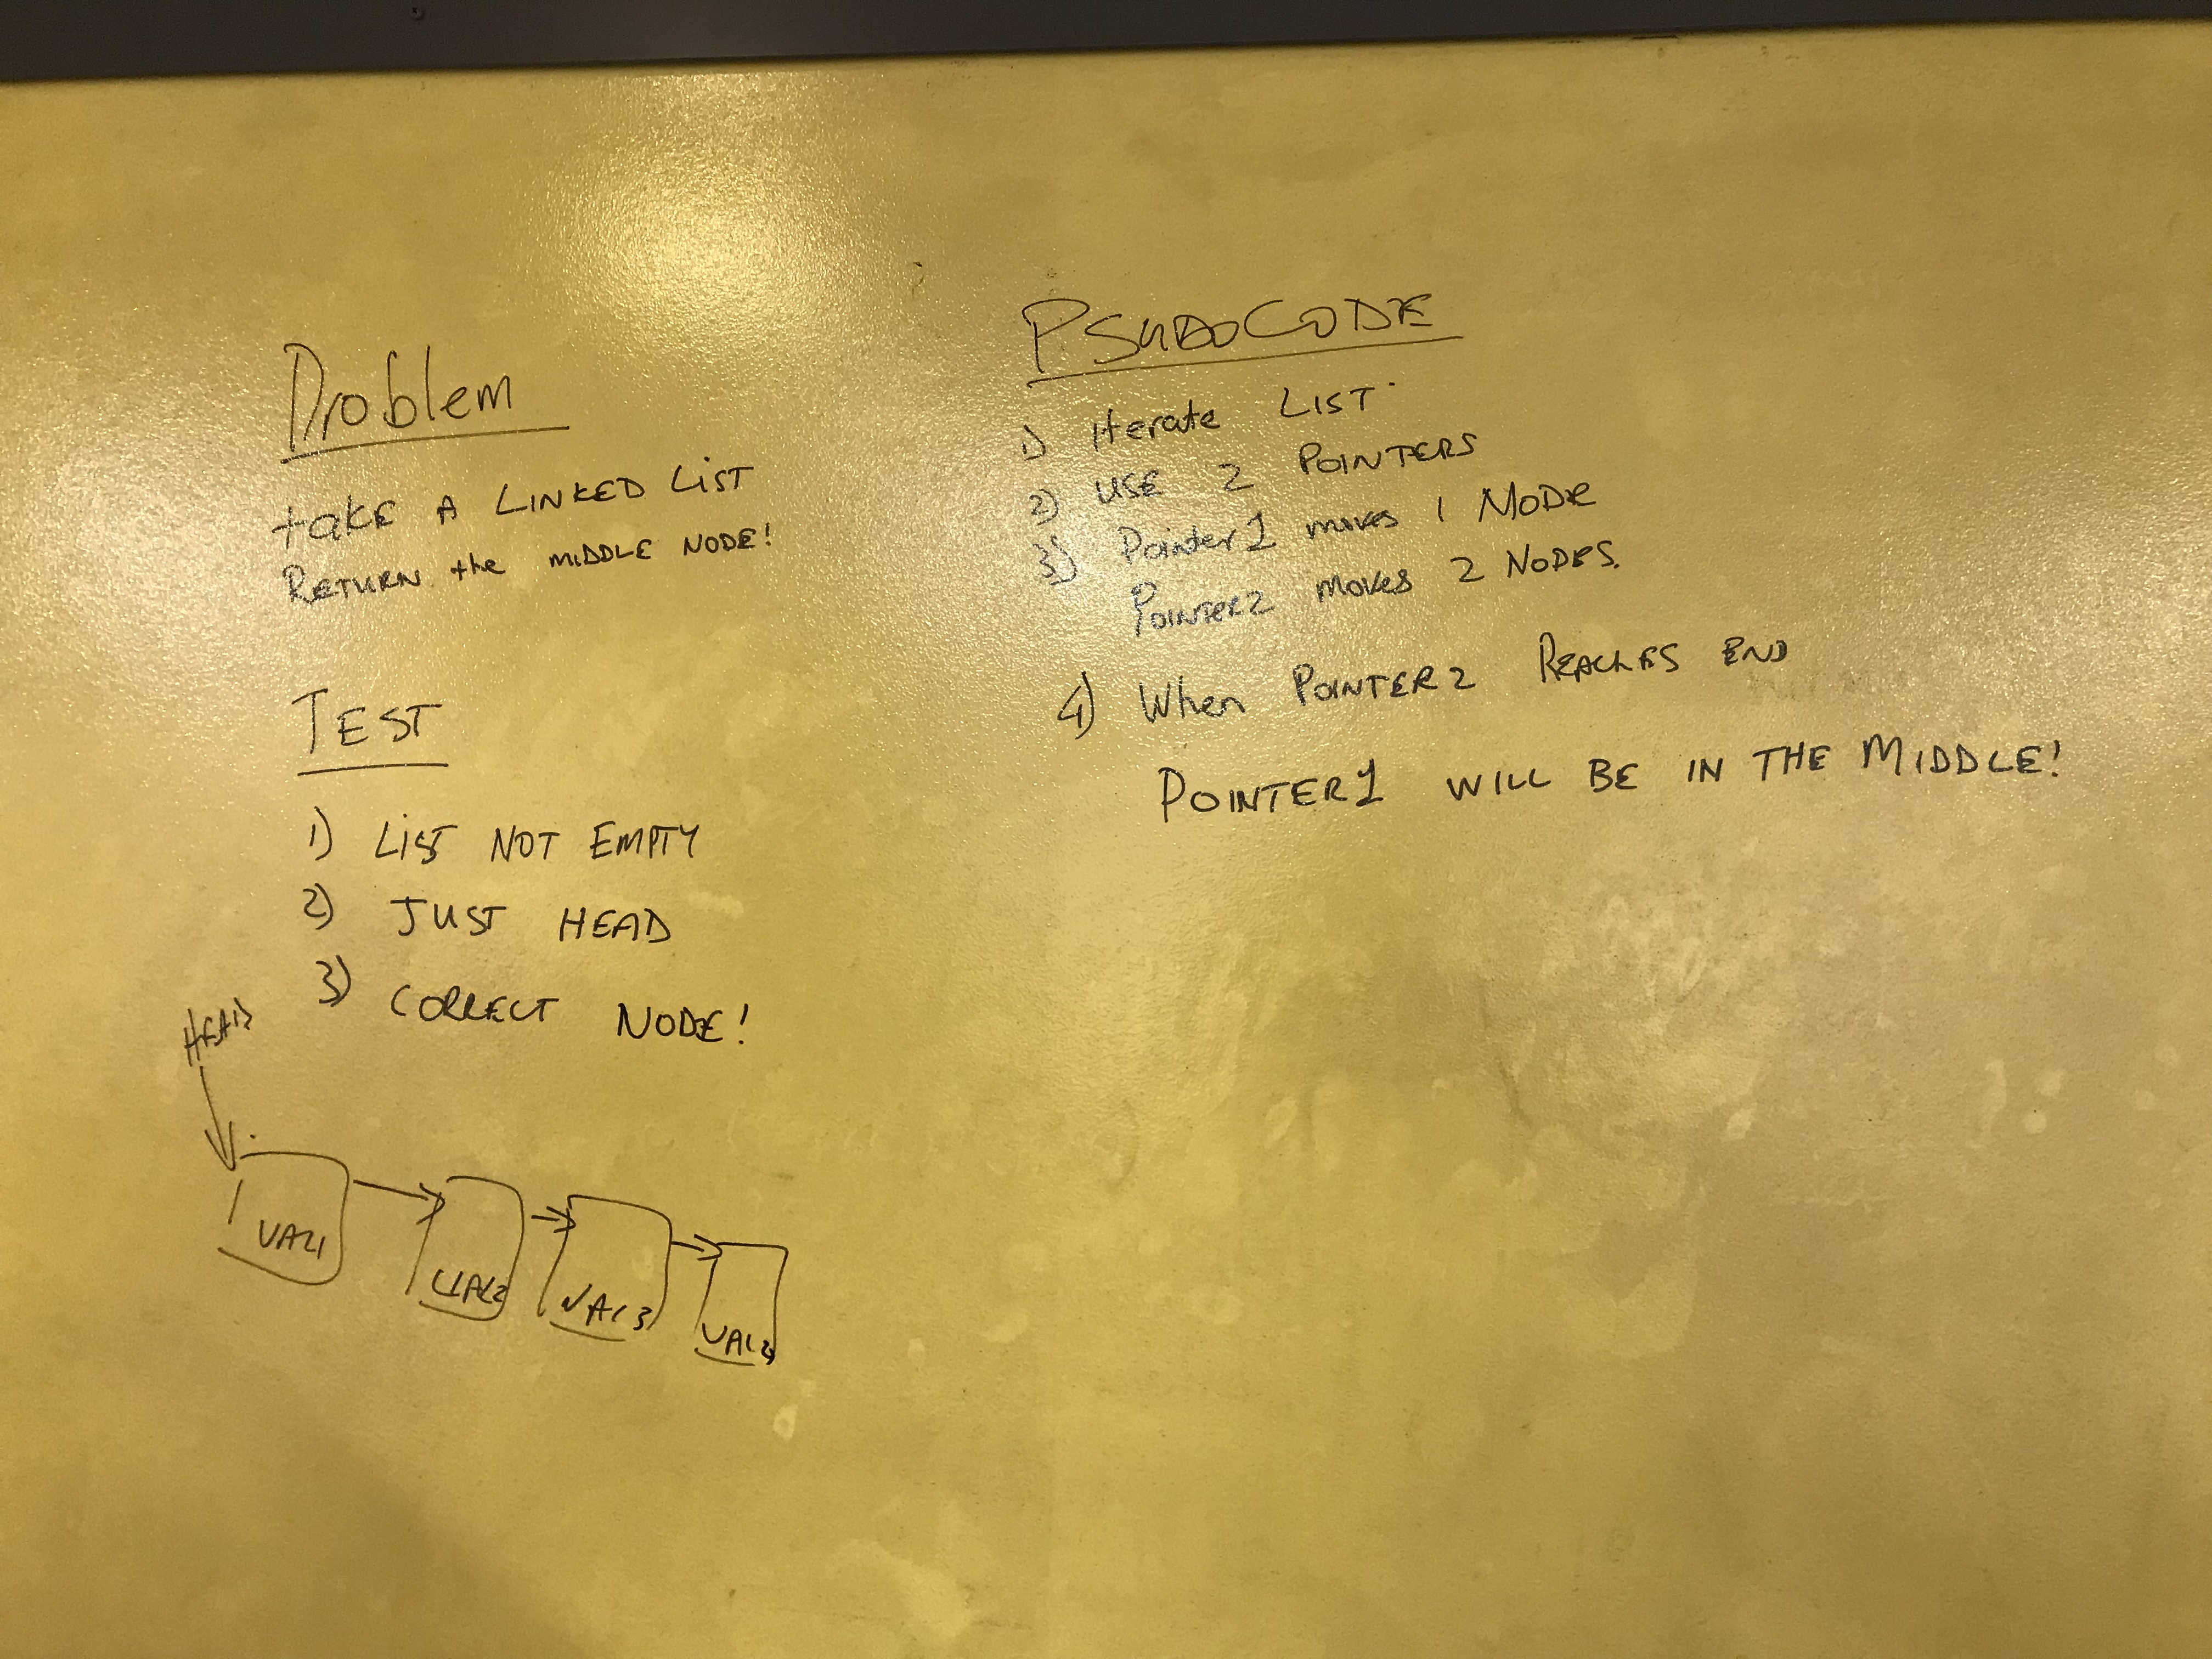 Problem
take A LINKED LIST
RETURN the MIDDLE NODE!
TEST
1) LIST NOT EMPTY
2) JUST HEAD
3) CORRECT NODE!
HEAD
VAL1
VAL2
VAL3
VAL4
PSUDOCODE
1) Iterate LIST
2) USE 2 POINTERS
3) Pointer1 moves 1 NODE
POINTER2 moves 2 NODES.
4) When POINTER2 REACHES END
POINTER1 WILL BE IN THE MIDDLE!